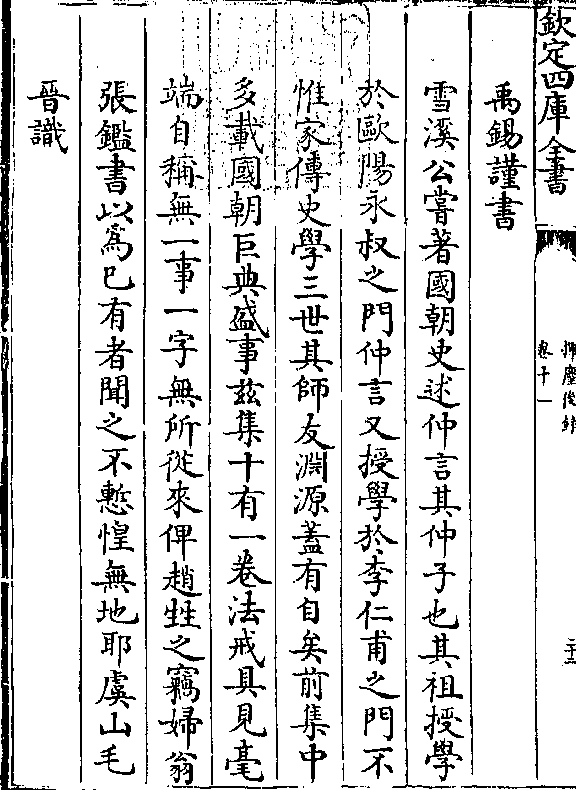 欽定四庫全書
揮麈後錄
卷十一
二十三
禹錫謹書
雪溪公嘗著國朝史述仲言其仲子也其祖授學
於歐陽永叔之門仲言又授學於李仁甫之門不
惟家傳史學三世其師友淵源蓋有自矣前集中
多載國朝巨典盛事茲集十有一卷法戒具見毫
端自稱無一事一字無所從來俾趙甡之竊婦翁
張鑑書以為已有者聞之不慙惶無地耶虞山毛
晉識